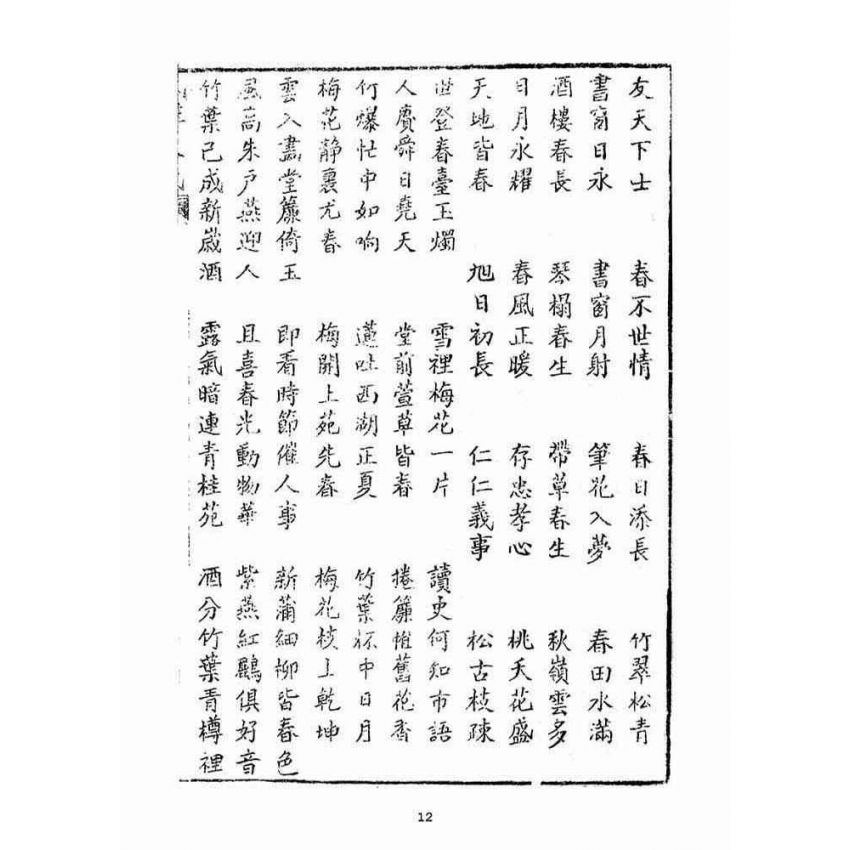 友天下士 春不世情 春日添長 竹翠松青
書窗日永 書窗月射 筆花入夢 春田水滿
酒樓春長 琴榻春生 帶草春生 秋嶺雲多
日月永耀 春風正暖 存忠孝心 桃夭花盛
天地皆春 旭日初長 仁仁義事 松古枝疎
世登春臺玉燭 雪裡梅花一片 讀史何知市語
人賡舜日堯天 堂前萱草皆春 捲簾惟舊花香
竹爆忙中如响 蘧吐西湖正夏 竹葉杯中日月
梅花靜裏尤春 梅開上苑先春 梅花枝上乾坤
雲入畵堂簾倚玉 即看時節催人事 新蒲細柳皆春色
風高朱戶燕迎人 且喜春光動物華 紫燕紅鸝俱好音
竹葉已成新歲酒 露氣暗連青桂苑 酒分竹葉青樽裡
12